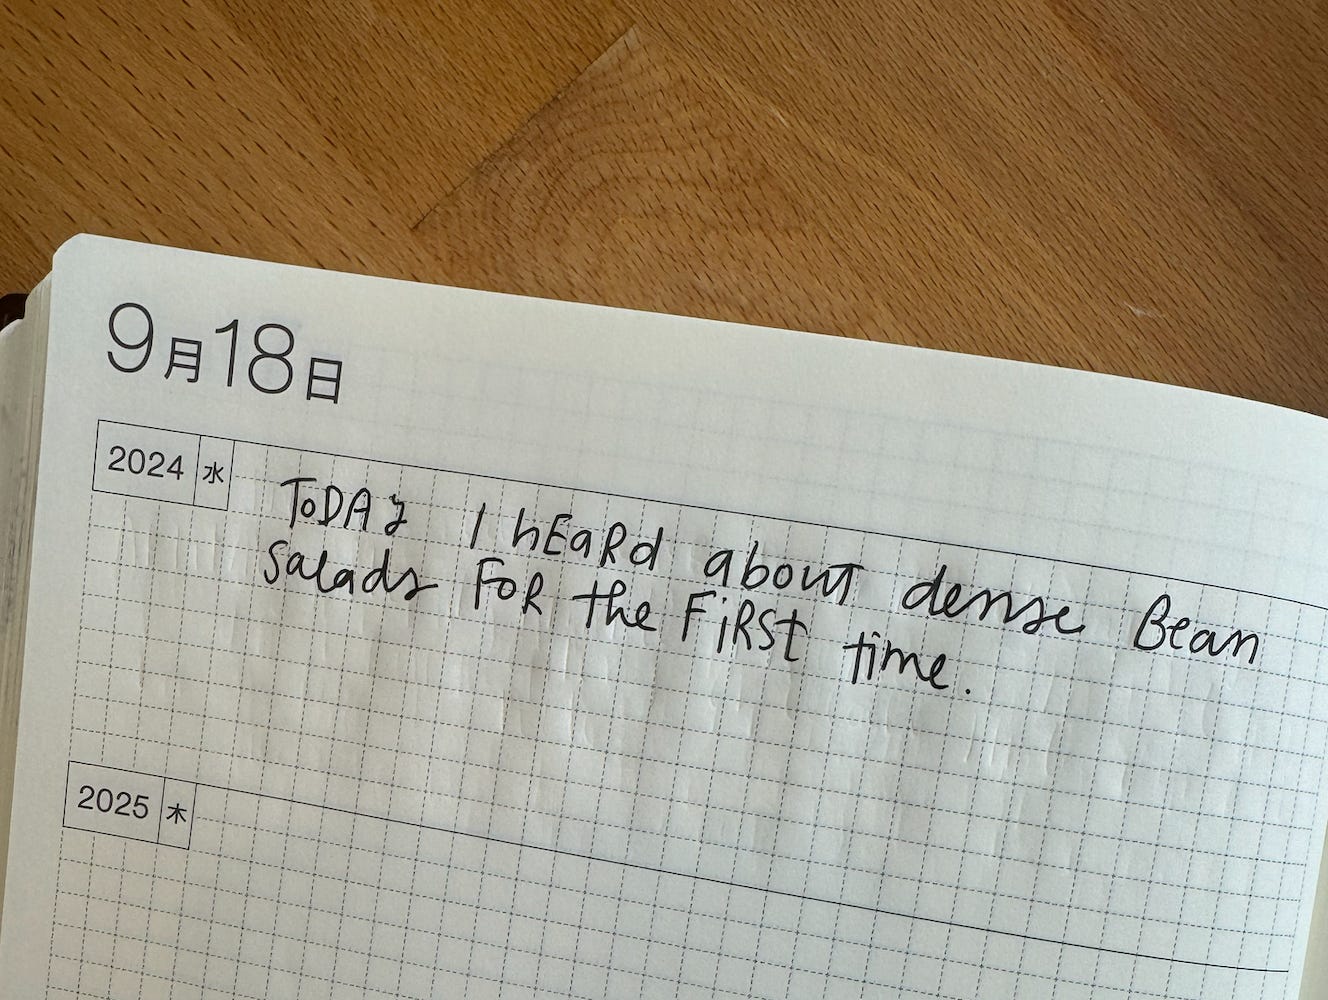 9月18日
2024 水
ToDAy I hEaRd about dense Bean
salads FoR the FiRSt time.
2025 木